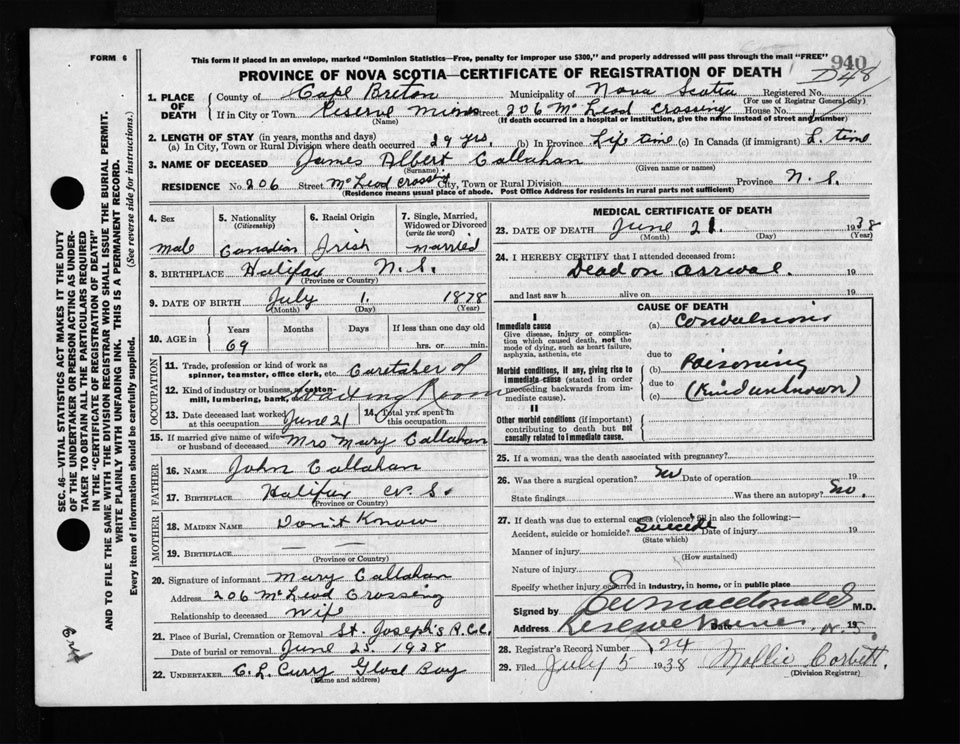 FORM 6
This form if placed in an envelope, marked "Dominion Statistics—Free, penalty for improper use $300," and properly addressed will pass through the mail "FREE"
940
PROVINCE OF NOVA SCOTIA—CERTIFICATE OF REGISTRATION OF DEATH
D48
1. PLACE OF DEATH
County of Cape Breton Municipality of Nova Scotia Registered No.
(For use of Registrar General only)
If in City or Town Reserve Mines Street 206 Mc Leod Crossing House No.
(Name) (If death occurred in a hospital or institution, give the name instead of street and number)
2. LENGTH OF STAY (in years, months and days)
(a) In City, Town or Rural Division where death occurred 29 yrs. (b) In Province Life time (c) In Canada (if immigrant) L. time
3. NAME OF DECEASED James Albert Callahan
(Surname) (Given name or names)
RESIDENCE No. 206 Street Mc Leod Crossing City, Town or Rural Division Province N. S.
(Residence means usual place of abode. Post Office Address for residents in rural parts not sufficient)
4. Sex
male
5. Nationality
(Citizenship)
Canadian
6. Racial Origin
Irish
7. Single, Married, Widowed or Divorced
(write the word)
married
8. BIRTHPLACE Halifax N. S.
(Province or Country)
9. DATE OF BIRTH July 1. 1878
(Month) (Day) (Year)
10. AGE in
Years Months Days If less than one day old
69 hrs. or min.
OCCUPATION
11. Trade, profession or kind of work as spinner, teamster, office clerk, etc. Caretaker of
12. Kind of industry or business, as cotton-mill, lumbering, bank, Waiting Room
13. Date deceased last worked at this occupation June 21
14. Total yrs. spent in this occupation
15. If married give name of wife or husband of deceased Mrs Mary Callahan
FATHER
16. NAME John Callahan
17. BIRTHPLACE Halifax N. S.
(Province or Country)
MOTHER
18. MAIDEN NAME Don't Know
19. BIRTHPLACE — —
(Province or Country)
20. Signature of informant Mary Callahan
Address 206 Mc Leod Crossing
Relationship to deceased Wife
21. Place of Burial, Cremation or Removal St. Joseph's R.C.C.
Date of burial or removal June 23. 1938
22. UNDERTAKER C. L. Curry Glace Bay
(Name and address)
MEDICAL CERTIFICATE OF DEATH
23. DATE OF DEATH June 21. 1938
(Month) (Day) (Year)
24. I HEREBY CERTIFY that I attended deceased from:
Dead on arrival. 19
and last saw h alive on 19
CAUSE OF DEATH
I
Immediate cause
Give disease, injury or complication which caused death, not the mode of dying, such as heart failure, asphyxia, asthenia, etc
(a) Convulsions
due to
Morbid conditions, if any, giving rise to immediate cause (stated in order proceeding backwards from immediate cause).
(b) Poisoning
due to
(c) (Kind unknown)
II
Other morbid conditions (if important) contributing to death but not causally related to immediate cause.
25. If a woman, was the death associated with pregnancy?
26. Was there a surgical operation? No Date of operation 19
State findings Was there an autopsy? No.
27. If death was due to external causes (violence) fill in also the following:—
Accident, suicide or homicide? Suicide Date of injury 19
(State which)
Manner of injury
(How sustained)
Nature of injury
Specify whether injury occurred in industry, in home, or in public place
Signed by Macdonald M.D.
Address Reserve Mines Date N. S. 19
28. Registrar's Record Number 24
29. Filed July 5 1938 Mollie Corbett
(Division Registrar)
SEC. 46—VITAL STATISTICS ACT MAKES IT THE DUTY OF THE UNDERTAKER OR PERSON ACTING AS UNDERTAKER TO OBTAIN ALL THE PARTICULARS REQUIRED IN THE "CERTIFICATE OF REGISTRATION OF DEATH"
AND TO FILE THE SAME WITH THE DIVISION REGISTRAR WHO SHALL ISSUE THE BURIAL PERMIT.
WRITE PLAINLY WITH UNFADING INK. THIS IS A PERMANENT RECORD.
Every item of information should be carefully supplied. (See reverse side for instructions.)